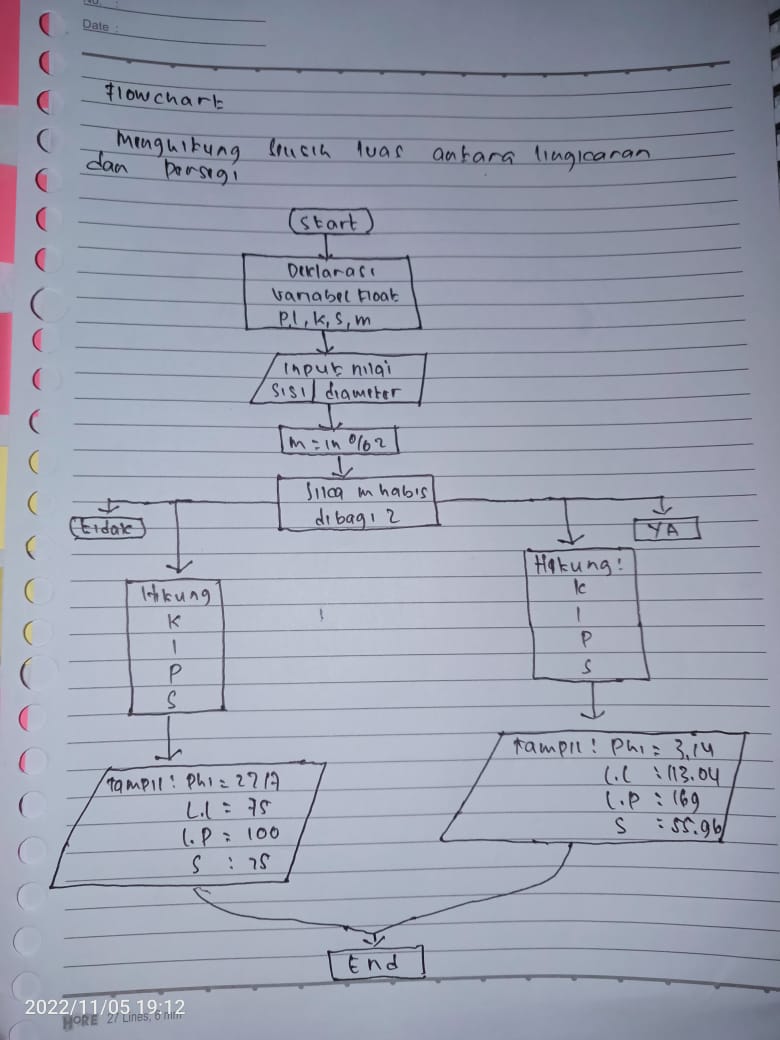 No. :
Date :
Flowchart
Menghitung selisih luas antara lingkaran
dan persegi
Start
Deklarasi
variabel float
P, l, k, s, m
Input nilai
sisi / diameter
m = in % 2
Jika m habis
dibagi 2
tidak
YA
Hitung
K
l
P
S
Hitung :
k
l
P
S
tampil : Phi = 22/7
L.l = 75
L.P = 100
S : 25
tampil : Phi = 3,14
L.L : 113.04
L.P : 169
S : 55.96
End
2022/11/05 19:12
MORE 27 Lines, 6 mm